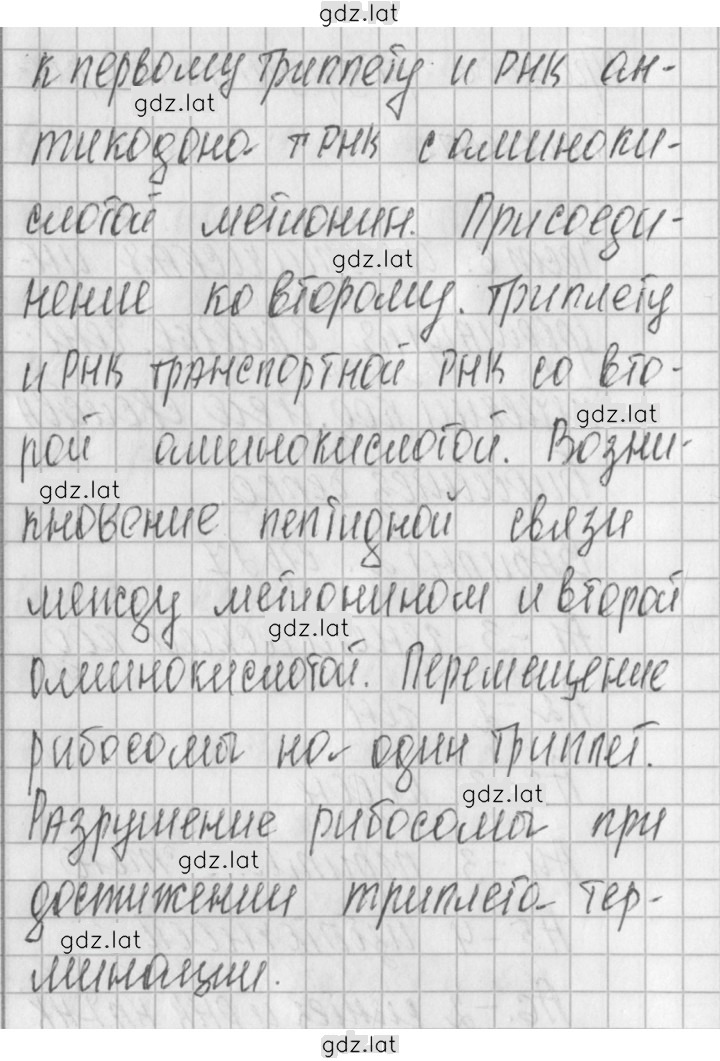 gdz.lat
к первому триплету и РНК ан-
gdz.lat
тикодона тРНК с аминоки-
слотой метионин. Присоеди-
gdz.lat
нение ко второму. триплету
и РНК транспортной РНК со вто-
gdz.lat
рой аминокислотой. Возни-
gdz.lat
кновение пептидной связи
между метионином и второй
gdz.lat
аминокислотой. Перемещение
рибосомы на один триплет.
gdz.lat
Разрушение рибосомы при
gdz.lat
достижении триплета тер-
gdz.lat
минации.
gdz.lat